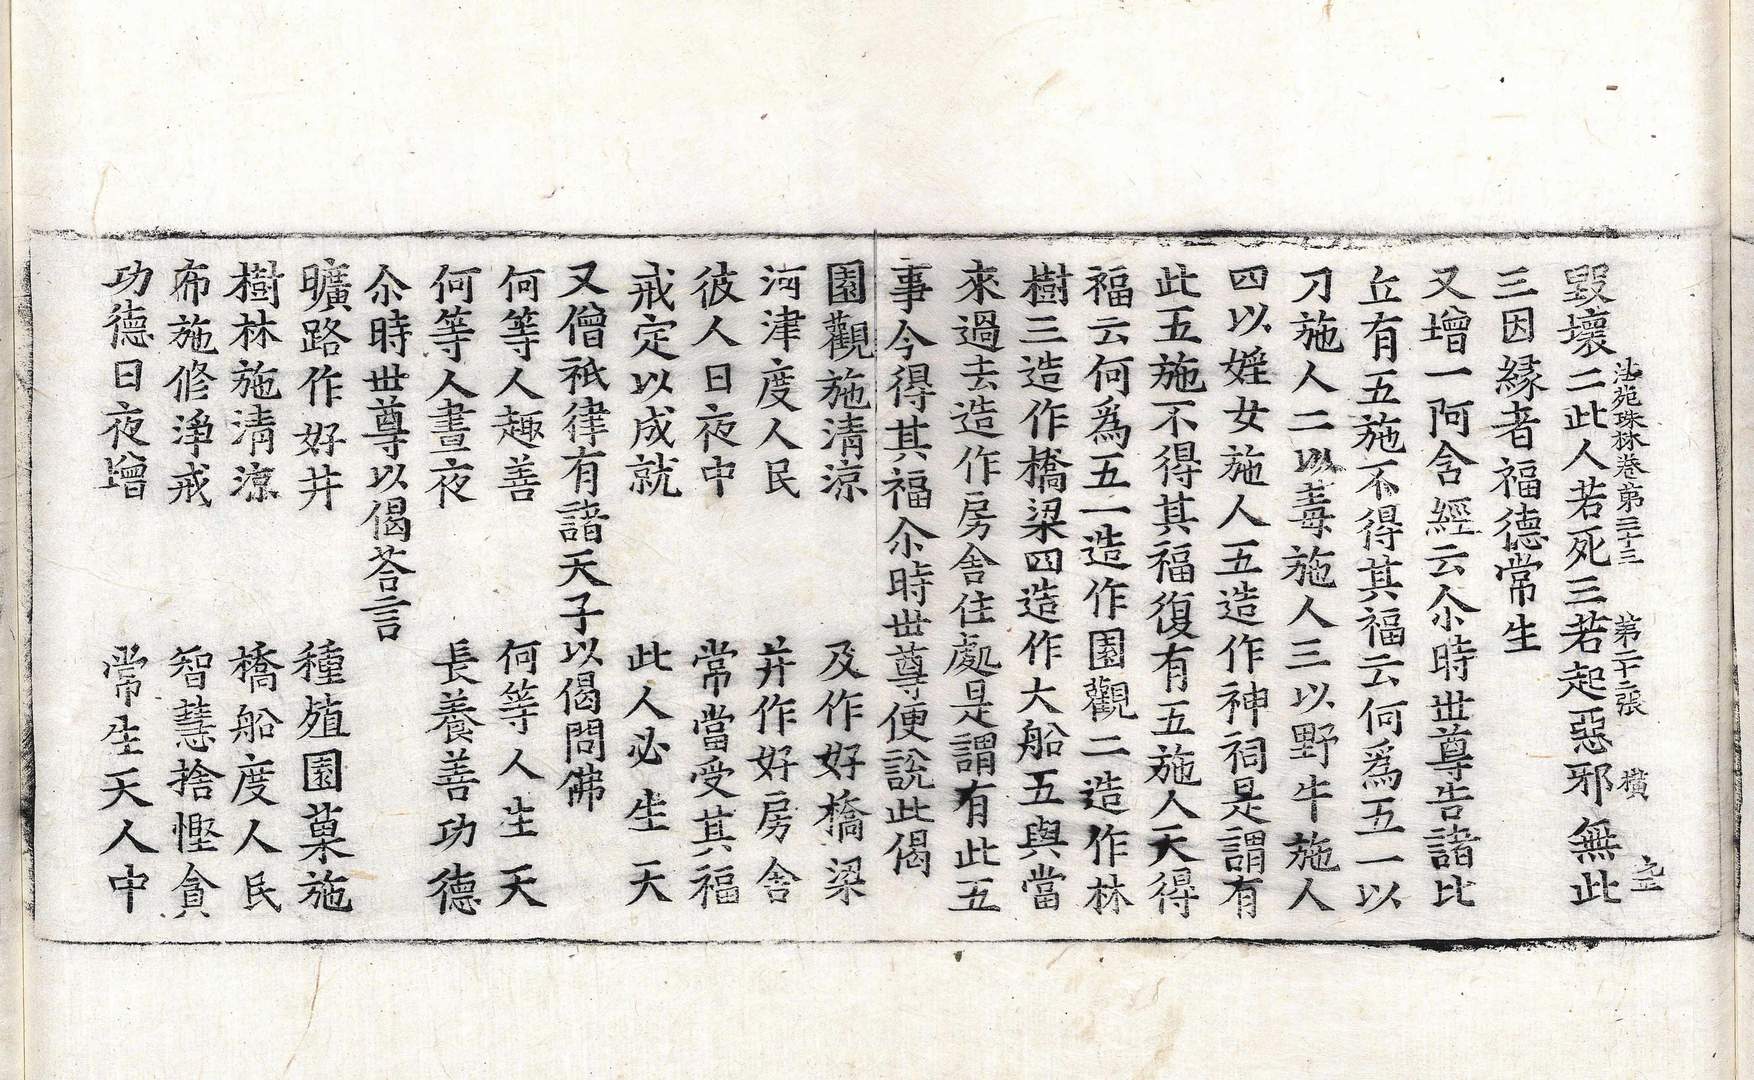 毀壞二此人若死三若起惡邪無此
法苑珠林卷第三十三 第二十二張 橫
三因緣者福德常生
又增一阿含經云尒時世尊告諸比
丘有五施不得其福云何爲五一以
刀施人二以毒施人三以野牛施人
四以婬女施人五造作神祠是謂有
此五施不得其福復有五施人天得
福云何爲五一造作園觀二造作林
樹三造作橋梁四造作大船五與當
來過去造作房舍住處是謂有此五
事今得其福尒時世尊便說此偈
園觀施清涼 及作好橋梁
河津度人民 并作好房舍
彼人日夜中 常當受其福
戒定以成就 此人必生天
又僧祇律有諸天子以偈問佛
何等人趣善 何等人生天
何等人晝夜 長養善功德
尒時世尊以偈荅言
曠路作好井 種殖園菓施
樹林施清涼 橋船度人民
布施修淨戒 智慧捨慳貪
功德日夜增 常生天人中